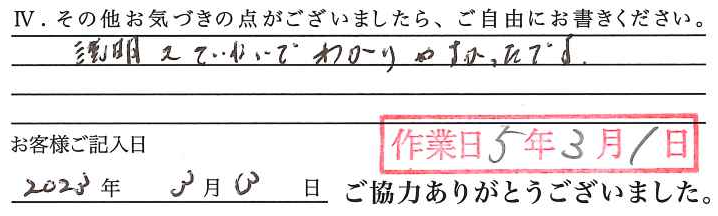 Ⅳ．その他お気づきの点がございましたら、ご自由にお書きください。
説明もていねいでわかりやすかったです。
お客様ご記入日
作業日5年3月1日
2023年 3月 日
ご協力ありがとうございました。